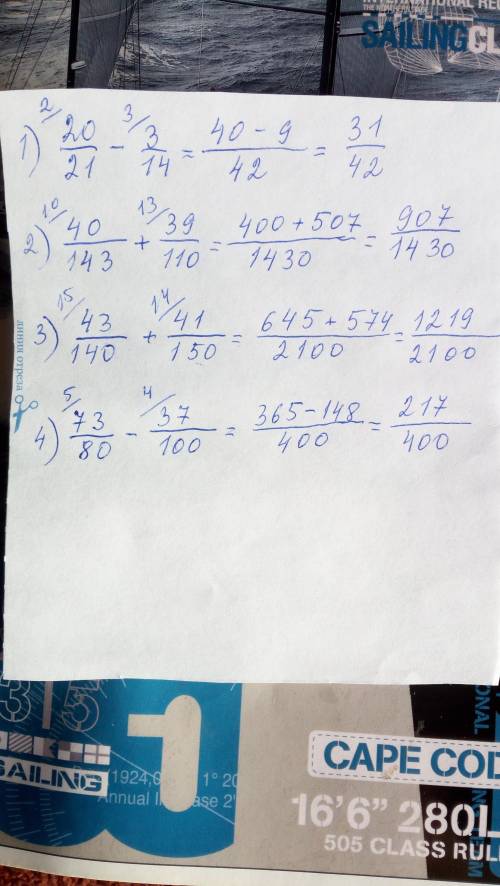 NATIONAL RE
SAILINGCL
1) 2/ 20/21 - 3/ 3/14 = (40 - 9)/42 = 31/42
2) 10/ 40/143 + 13/ 39/110 = (400 + 507)/1430 = 907/1430
3) 15/ 43/140 + 14/ 41/150 = (645 + 574)/2100 = 1219/2100
4) 5/ 73/80 - 4/ 37/100 = (365 - 148)/400 = 217/400
линия отреза
315
1
SAILING
1924,0
1° 20
Annual
ase 2
CAPE COD
16'6" 280L
505 CLASS RUL